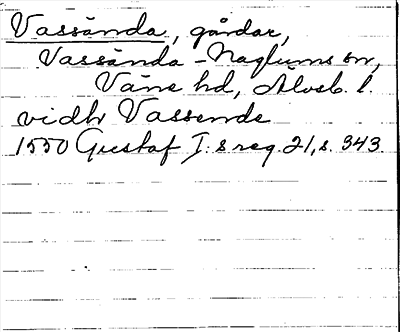 Vassända, gårdar,
Vassända-Naglums sn,
Väne hd, Älvsb. l.
vidh Vassende
1550 Gustaf I:s reg. 21, s. 343.